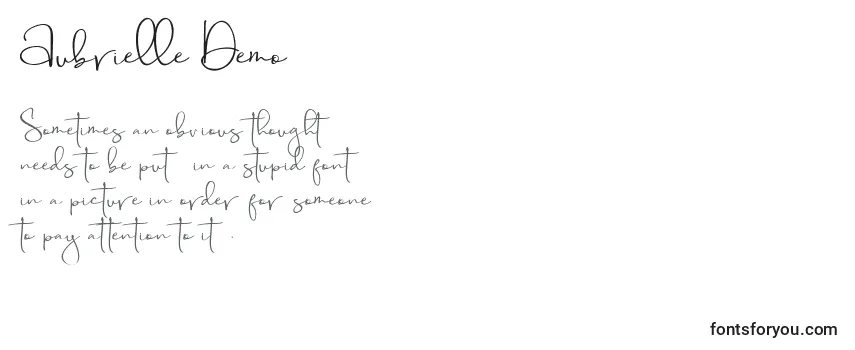 Aubrielle Demo
Sometimes an obvious thought
needs to be put in a stupid font
in a picture in order for someone
to pay attention to it .
fontsforyou.com